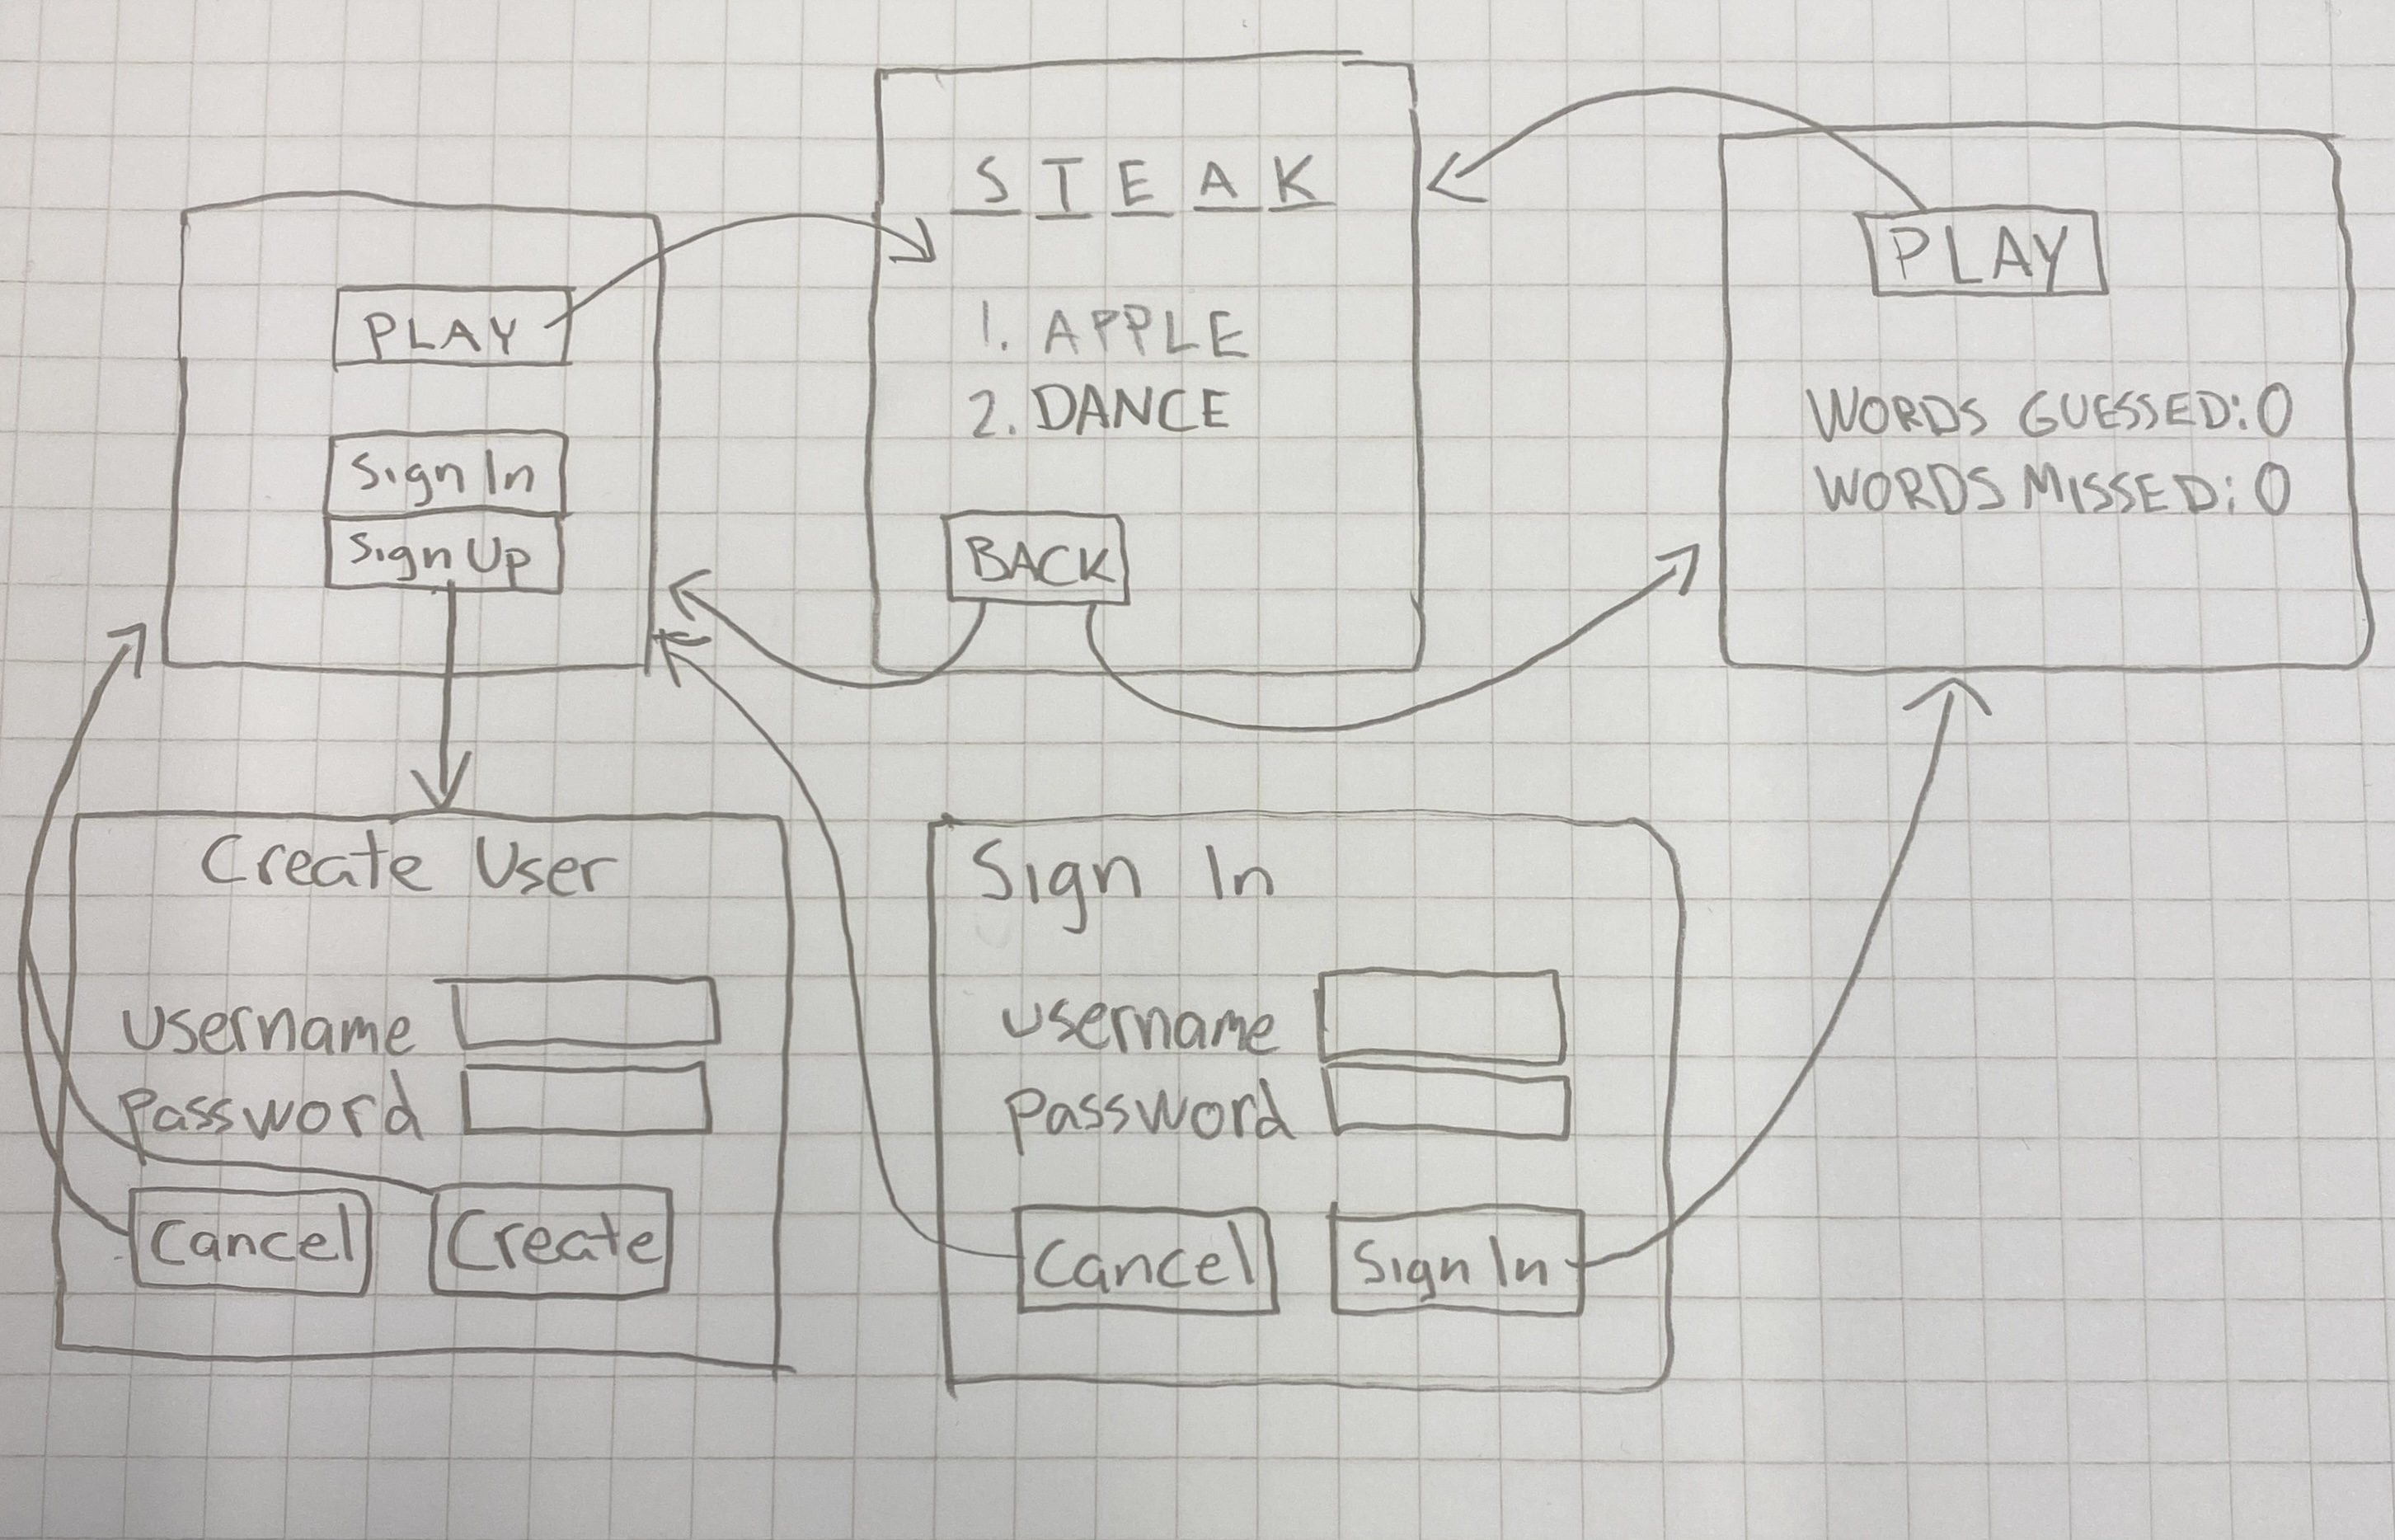 PLAY
Sign In
Sign Up
S T E A K
1. APPLE
2. DANCE
BACK
PLAY
WORDS GUESSED: 0
WORDS MISSED: 0
Create User
username
password
Cancel
Create
Sign In
username
password
Cancel
Sign In